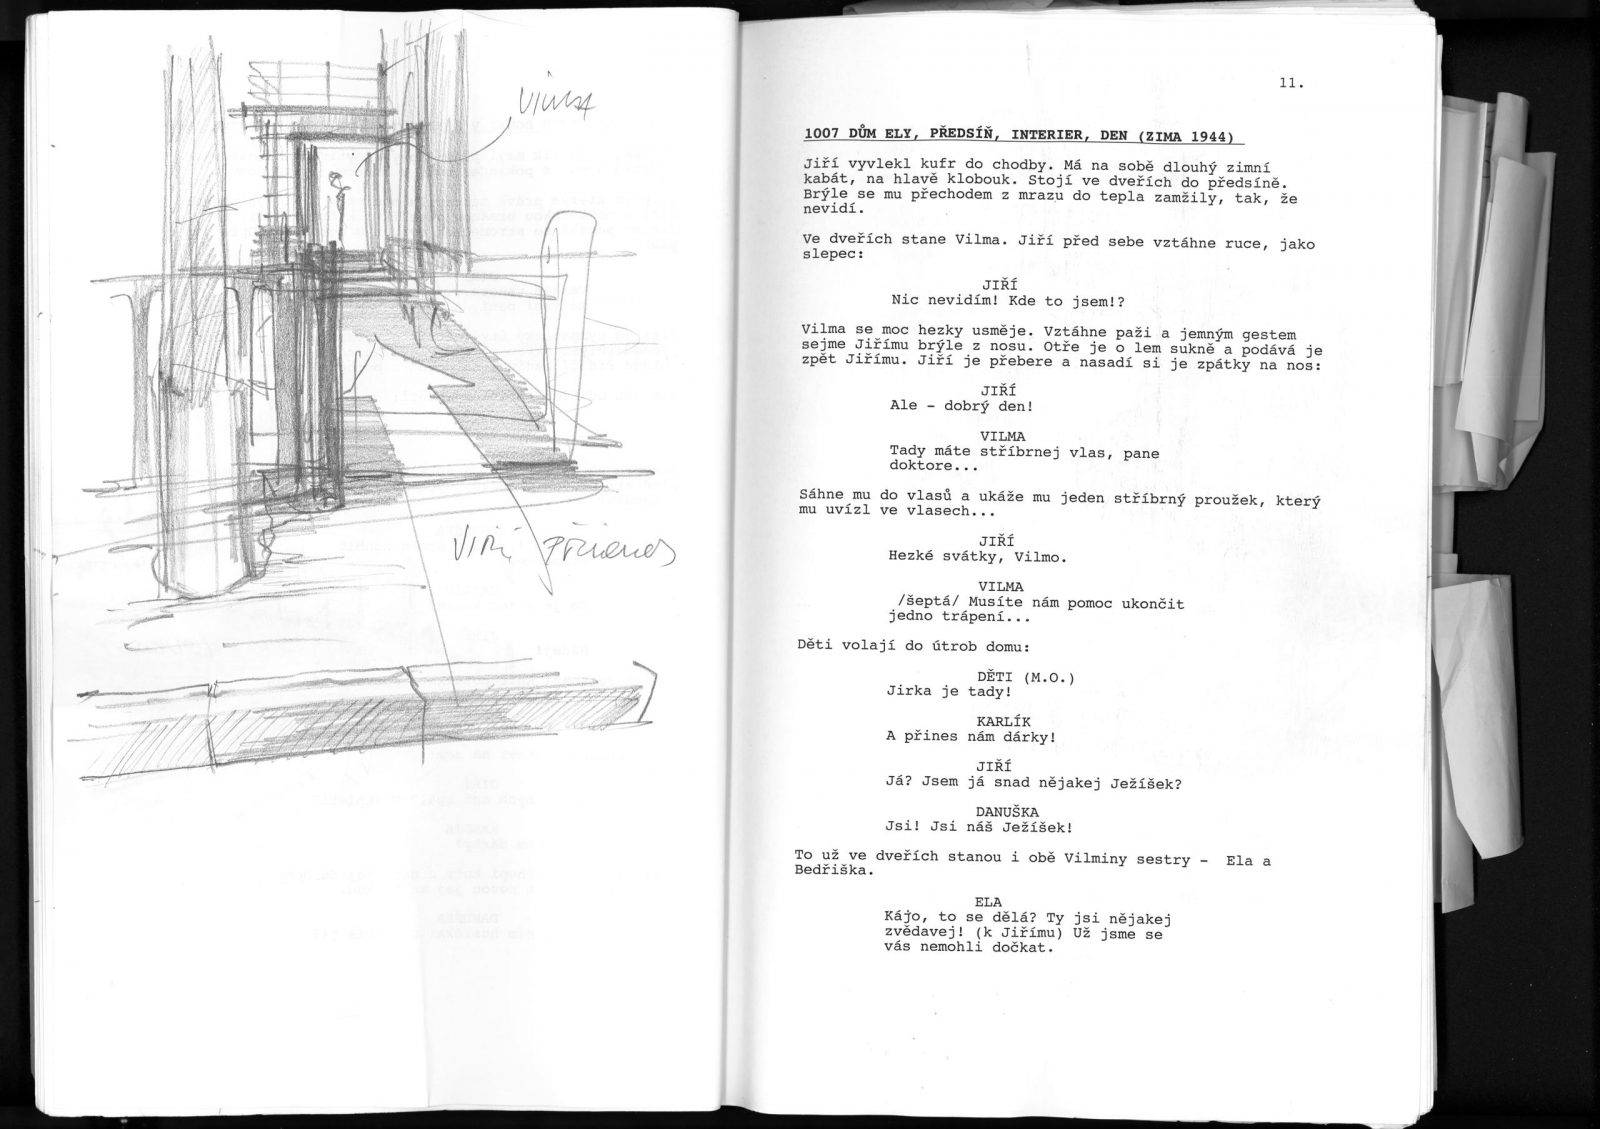 VILMA
JIŘÍ PŘÍCHOD
11.
1007 DŮM ELY, PŘEDSÍŇ, INTERIER, DEN (ZIMA 1944)
Jiří vyvlekl kufr do chodby. Má na sobě dlouhý zimní
kabát, na hlavě klobouk. Stojí ve dveřích do předsíně.
Brýle se mu přechodem z mrazu do tepla zamžily, tak, že
nevidí.
Ve dveřích stane Vilma. Jiří před sebe vztáhne ruce, jako
slepec:
JIŘÍ
Nic nevidím! Kde to jsem!?
Vilma se moc hezky usměje. Vztáhne paži a jemným gestem
sejme Jiřímu brýle z nosu. Otře je o lem sukně a podává je
zpět Jiřímu. Jiří je přebere a nasadí si je zpátky na nos:
JIŘÍ
Ale - dobrý den!
VILMA
Tady máte stříbrnej vlas, pane
doktore...
Sáhne mu do vlasů a ukáže mu jeden stříbrný proužek, který
mu uvízl ve vlasech...
JIŘÍ
Hezké svátky, Vilmo.
VILMA
/šeptá/ Musíte nám pomoc ukončit
jedno trápení...
Děti volají do útrob domu:
DĚTI (M.O.)
Jirka je tady!
KARLÍK
A přines nám dárky!
JIŘÍ
Já? Jsem já snad nějakej Ježíšek?
DANUŠKA
Jsi! Jsi náš Ježíšek!
To už ve dveřích stanou i obě Vilminy sestry - Ela a
Bedřiška.
ELA
Kájo, to se dělá? Ty jsi nějakej
zvědavej! (k Jiřímu) Už jsme se
vás nemohli dočkat.